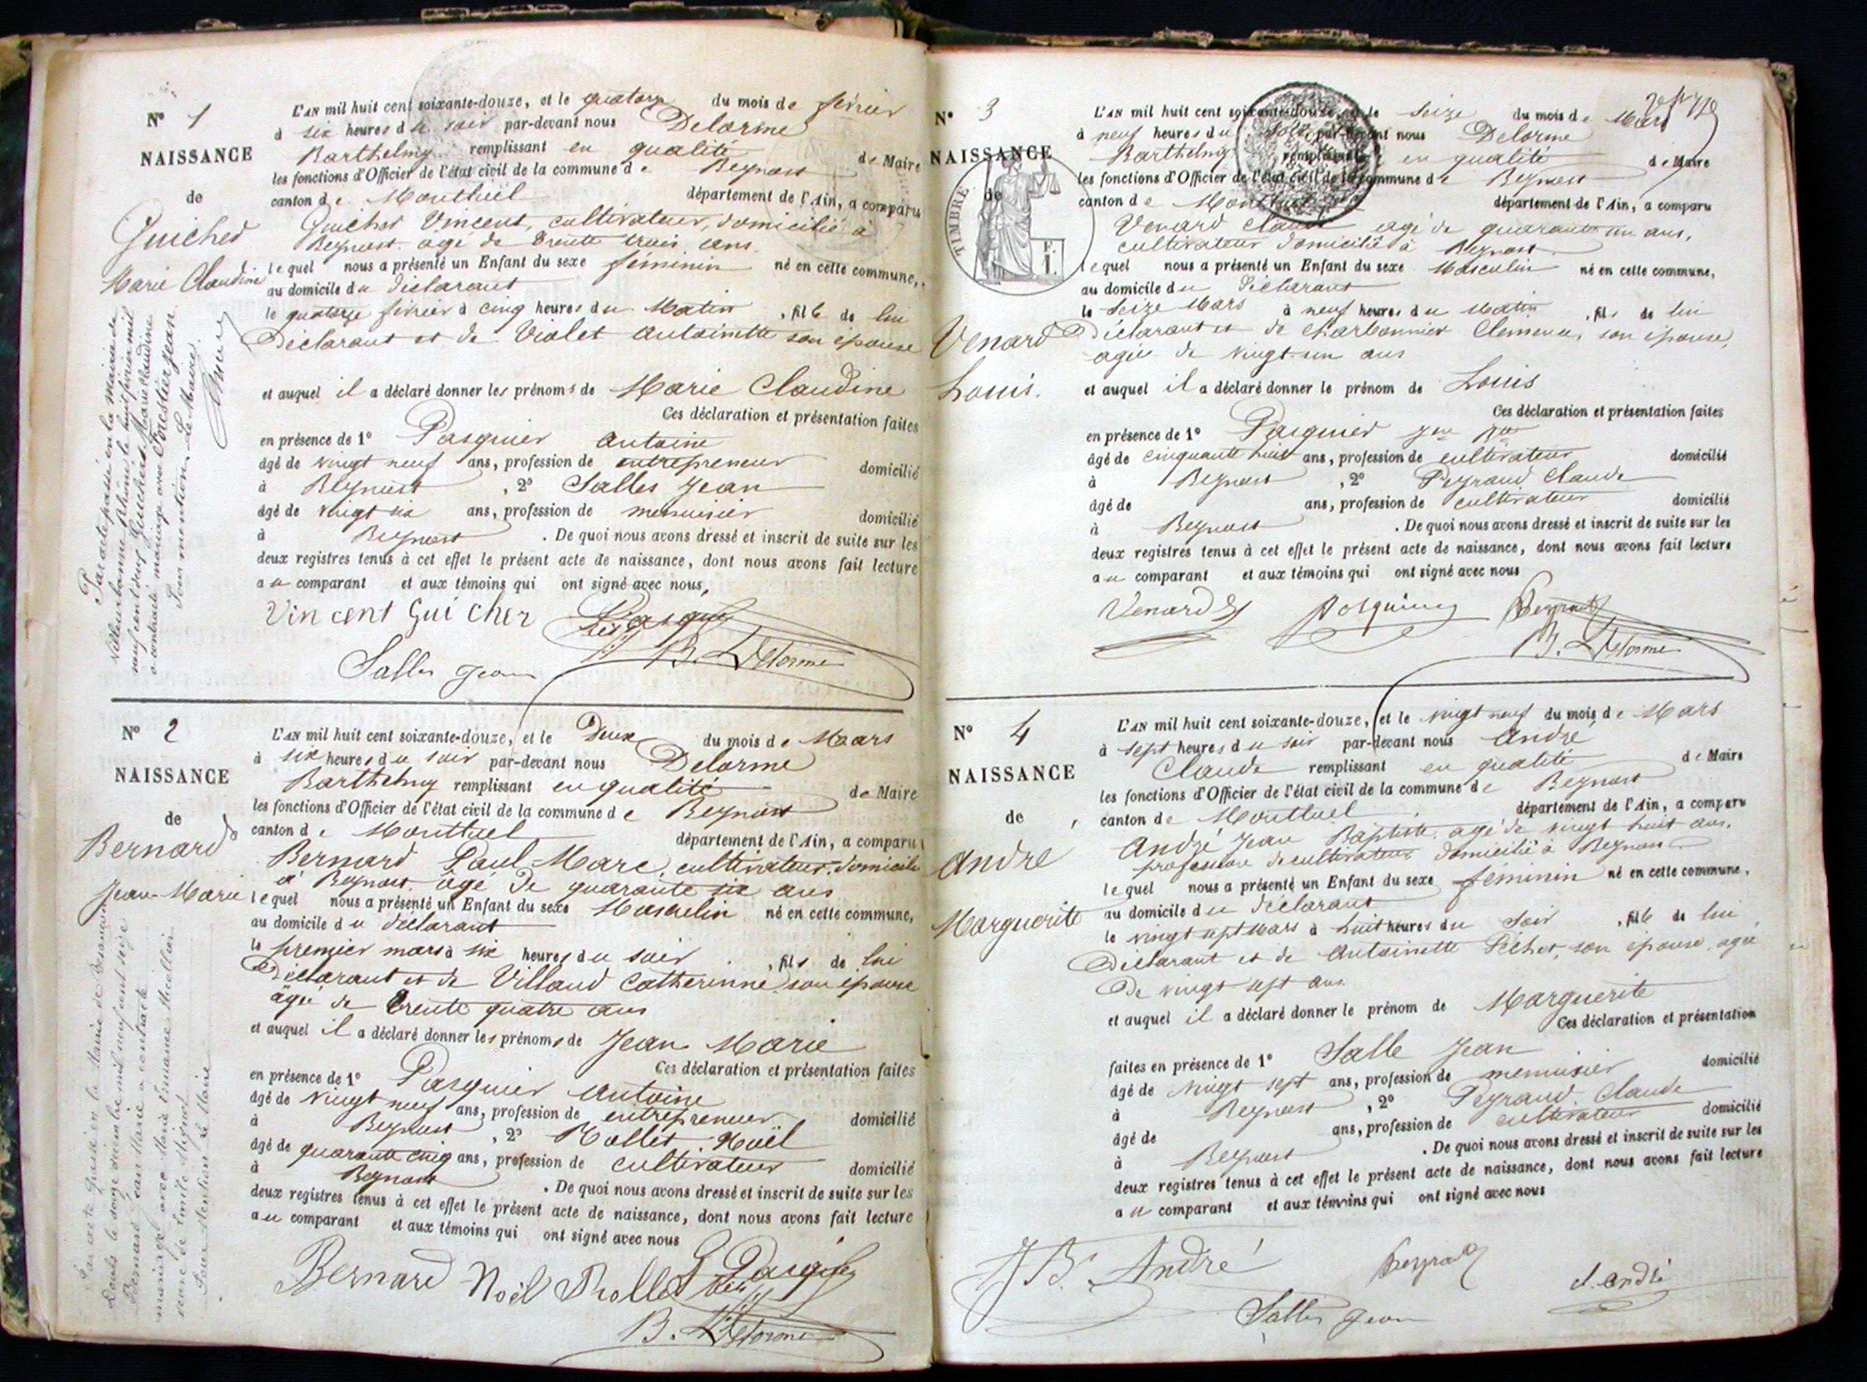 N° 1
NAISSANCE
de
Guicher
Marie Claudine
L'AN mil huit cent soixante-douze, et le quatorze du mois de février
à six heures du soir par-devant nous Delorme
Barthelmy remplissant en qualité de Maire
les fonctions d'Officier de l'état civil de la commune de Beynost
canton de Montluel département de l'Ain, a comparu
Guicher Vincent, cultivateur, domicilié à
Beynost. agé de trente trois ans.
lequel nous a présenté un Enfant du sexe féminin né en cette commune,
au domicile du déclarant
le quatorze février à cinq heures du Matin, fille de lui
Déclarant et de Violet Antoinette son épouse
et auquel il a déclaré donner les prénoms de Marie Claudine
Ces déclaration et présentation faites
en présence de 1° Pasquier Antoine
âgé de vingt neuf ans, profession de entrepreneur domicilié
à Beynost, 2° Salles Jean
âgé de vingt six ans, profession de menuisier domicilié
à Beynost. De quoi nous avons dressé et inscrit de suite sur les
deux registres tenus à cet effet le présent acte de naissance, dont nous avons fait lecture
au comparant et aux témoins qui ont signé avec nous,
Vincent Guicher
Salles Jean
B. Delorme
Par acte passé en la mairie de
Villeurbanne Rhône le huit février mil
neuf cent deux Guicher Marie Claudine
a contracté mariage avec Forestier Jean
Pour mention. Le Maire,
N° 2
NAISSANCE
de
Bernard
Jean-Marie
L'AN mil huit cent soixante-douze, et le Deux du mois de Maars
à six heures du soir par-devant nous Delorme
Barthelmy remplissant en qualité de Maire
les fonctions d'Officier de l'état civil de la commune de Beynost
canton de Montluel département de l'Ain, a comparu
Bernard Paul-Marc, cultivateur, domicilié
à Beynost. âgé De quarante six ans
lequel nous a présenté un Enfant du sexe Masculin né en cette commune,
au domicile du déclarant
le premier mars à six heures du soir, fils de lui
Déclarant et de Villand Catherinne son épouse
âgée de trente quatre ans
et auquel il a déclaré donner les prénoms de Jean Marie
Ces déclaration et présentation faites
en présence de 1° Pasquier Antoine
âgé de vingt neuf ans, profession de entrepreneur domicilié
à Beynost, 2° Rollet Noël
âgé de quarante cinq ans, profession de cultivateur domicilié
à Beynost. De quoi nous avons dressé et inscrit de suite sur les
deux registres tenus à cet effet le présent acte de naissance, dont nous avons fait lecture
au comparant et aux témoins qui ont signé avec nous
Bernard Noël Rollet
B. Delorme
Par acte passé en la Mairie de
mil neuf cent seize
Bernard Jean Marie a contracté
mariage avec Marie
veuve de Emile Mignot
Pour Mention Le Maire
N° 3
NAISSANCE
de
TIMBRE
Venard
Louis.
L'AN mil huit cent soixante-douze, et le Seize du mois de Mars
à neuf heures du soir par-devant nous Delorme
Barthelmy remplissant en qualité de Maire
les fonctions d'Officier de l'état civil de la commune de Beynost
canton de Montluel département de l'Ain, a comparu
Venard Claude agé de quarante un ans,
cultivateur domicilié à Beynost
lequel nous a présenté un Enfant du sexe Masculin né en cette commune,
au domicile du déclarant
le Seize Mars à neuf heures du Matin, fils de lui
Déclarant et de Charbonnier Clemence, son épouse,
agée de vingt-un ans
et auquel il a déclaré donner le prénom de Louis
Ces déclaration et présentation faites
en présence de 1° Pasquier
âgé de cinquante huit ans, profession de cultivateur domicilié
à Beynost, 2° Peyraud Claude
âgé de ans, profession de cultivateur domicilié
à Beynost. De quoi nous avons dressé et inscrit de suite sur les
deux registres tenus à cet effet le présent acte de naissance, dont nous avons fait lecture
au comparant et aux témoins qui ont signé avec nous
Venard
B. Delorme
N° 4
NAISSANCE
de
André
Marguerite
L'AN mil huit cent soixante-douze, et le vingt neuf du mois de Mars
à sept heures du soir par-devant nous André
Claude remplissant en qualité de Maire
les fonctions d'Officier de l'état civil de la commune de Beynost
canton de Montluel département de l'Ain, a comparu
André Jean Baptiste agé de vingt huit ans,
profession de cultivateur domicilié à Beynost
lequel nous a présenté un Enfant du sexe feminin né en cette commune,
au domicile du déclarant
le vingt sept Mars à huit heures du Soir, fille de lui
Déclarant et de Antoinette Pichot, son épouse agée
De vingt sept ans
et auquel il a déclaré donner le prénom de Marguerite
Ces déclaration et présentation
faites en présence de 1° Salle Jean
âgé de vingt sept ans, profession de menuisier domicilié
à Beynost, 2° Peyraud Claude
âgé de ans, profession de cultivateur domicilié
à Beynost. De quoi nous avons dressé et inscrit de suite sur les
deux registres tenus à cet effet le présent acte de naissance, dont nous avons fait lecture
au comparant et aux témoins qui ont signé avec nous
J B. André
Salles Jean